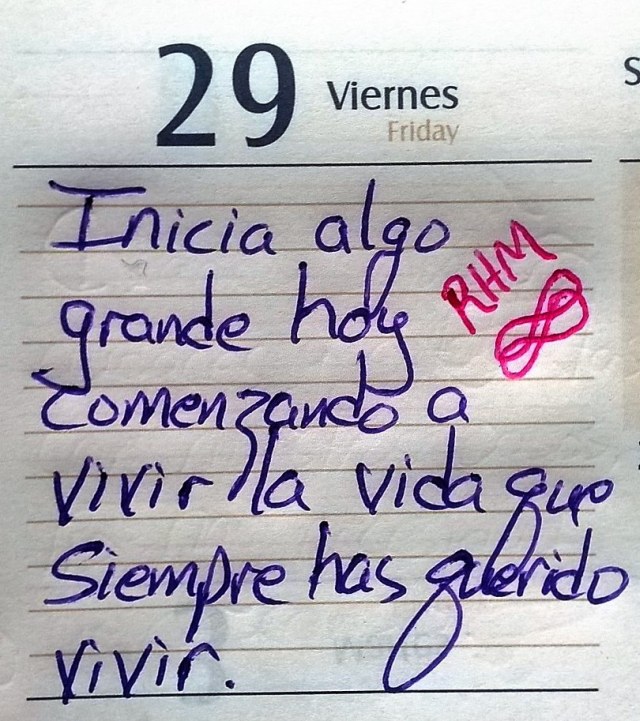 29 Viernes
Friday
Inicia algo
grande hoy
RHM
comenzando a
vivir la vida que
Siempre has querido
vivir.